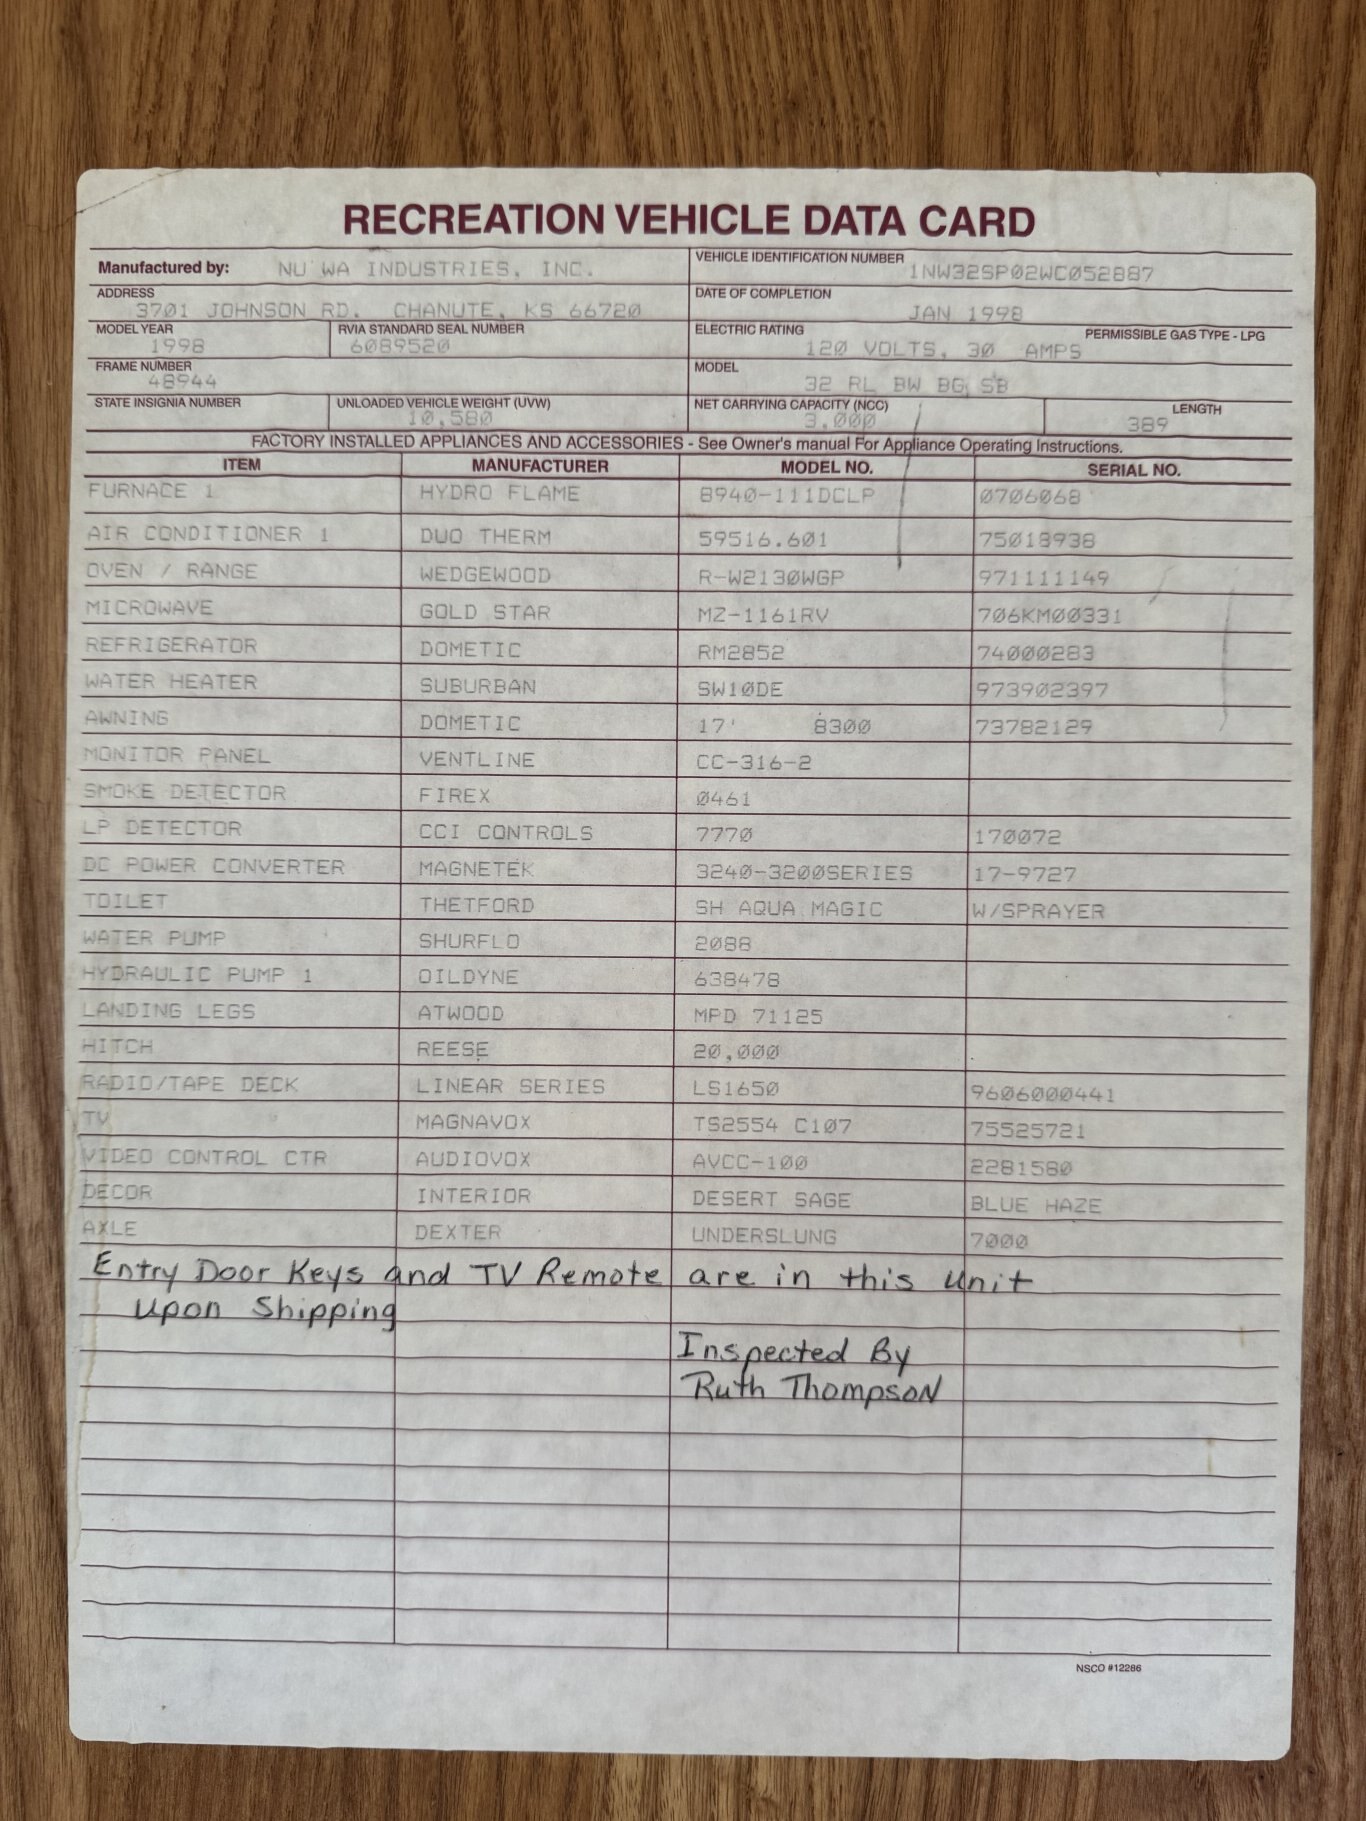 RECREATION VEHICLE DATA CARD
Manufactured by: NU WA INDUSTRIES, INC.
VEHICLE IDENTIFICATION NUMBER
1NW32SP02WC052887
ADDRESS
3701 JOHNSON RD. CHANUTE, KS 66720
DATE OF COMPLETION
JAN 1998
MODEL YEAR
1998
RVIA STANDARD SEAL NUMBER
6089520
ELECTRIC RATING PERMISSIBLE GAS TYPE - LPG
120 VOLTS, 30 AMPS
FRAME NUMBER
48944
MODEL
32 RL BW BG SB
STATE INSIGNIA NUMBER
UNLOADED VEHICLE WEIGHT (UVW)
10,580
NET CARRYING CAPACITY (NCC)
3,000
LENGTH
389
FACTORY INSTALLED APPLIANCES AND ACCESSORIES - See Owner's manual For Appliance Operating Instructions.
ITEM MANUFACTURER MODEL NO. SERIAL NO.
FURNACE 1 HYDRO FLAME 8940-111DCLP 0706068
AIR CONDITIONER 1 DUO THERM 59516.601 75018938
OVEN / RANGE WEDGEWOOD R-W2130WGP 971111149
MICROWAVE GOLD STAR MZ-1161RV 706KM00331
REFRIGERATOR DOMETIC RM2852 74000283
WATER HEATER SUBURBAN SW10DE 973902397
AWNING DOMETIC 17' 8300 73782129
MONITOR PANEL VENTLINE CC-316-2
SMOKE DETECTOR FIREX 0461
LP DETECTOR CCI CONTROLS 7770 170072
DC POWER CONVERTER MAGNETEK 3240-3200SERIES 17-9727
TOILET THETFORD SH AQUA MAGIC W/SPRAYER
WATER PUMP SHURFLO 2088
HYDRAULIC PUMP 1 OILDYNE 638478
LANDING LEGS ATWOOD MPD 71125
HITCH REESE 20,000
RADIO/TAPE DECK LINEAR SERIES LS1650 9606000441
TV MAGNAVOX TS2554 C107 75525721
VIDEO CONTROL CTR AUDIOVOX AVCC-100 2281580
DECOR INTERIOR DESERT SAGE BLUE HAZE
AXLE DEXTER UNDERSLUNG 7000
Entry Door Keys and TV Remote are in this unit
upon Shipping
Inspected By
Ruth Thompson
NSCO #12286